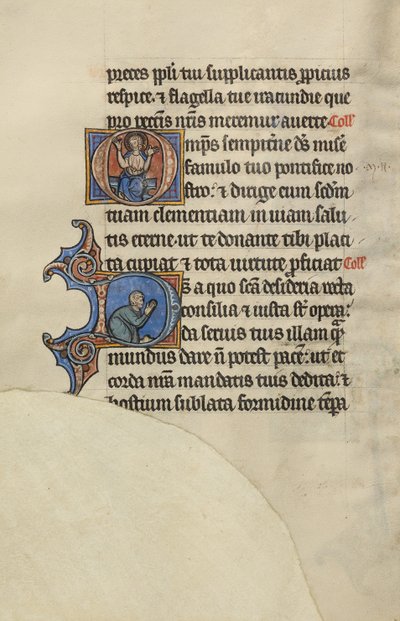 preces ppl'i tui supplicantis propicius
respice. & flagella tue iracundie que
pro peccis nr̄is meremur auerte. Coll'
Omp̄s sempitne ds̄ mise
famulo tuo pontifice no
stro: & dirige eum scdm
tuam clementiam in uiam salu
tis eterne. ut te donante tibi placi
ta cupiat & tota uirtute pficiat Coll'
Ds̄ a quo sc̄a desideria recta
consilia & iusta st̄ opera:
da seruis tuis illam quā
mundus dare n̄ potest pacē: ut et
corda nr̄a mandatis tuis dedita: &
hostium sublata formidine tēpa